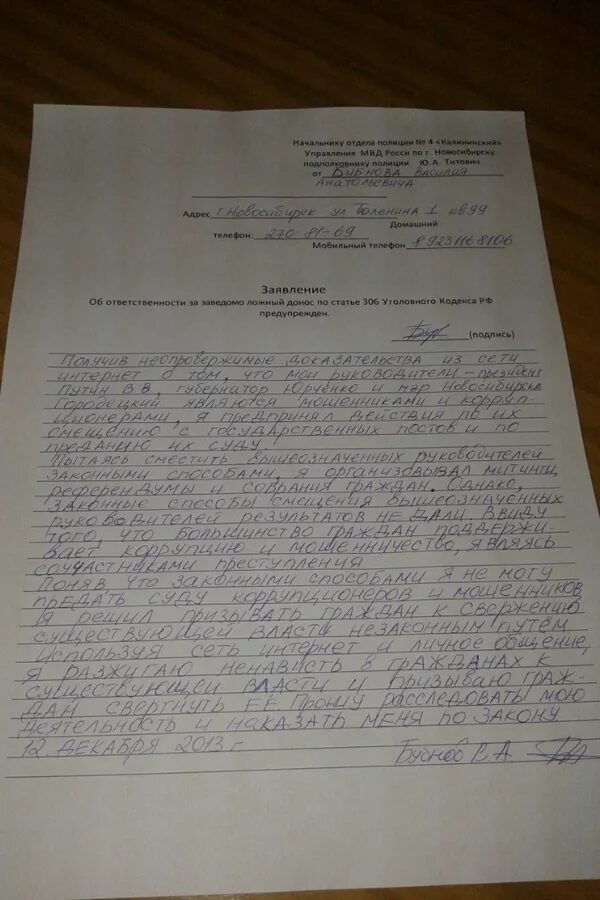 Начальнику отдела полиции № 4 «Калининский»
Управления МВД Росси по г. Новосибирску
подполковнику полиции Ю.А. Титович
от Бубнова Василия
Анатольевича
Адрес г. Новосибирск ул Тюленина 1 кв99
Домашний
телефон: 270-81-69
Мобильный телефон 89231168106
Заявление
Об ответственности за заведомо ложный донос по статье 306 Уголовного Кодекса РФ
предупрежден.
(подпись)
Получив неопровержимые доказательства из сети
интернет о том, что мои руководители – президент
Путин В.В, губернатор Юрченко и мэр Новосибирска
Городецкий являются мошенниками и корруп-
ционерами, я предпринял действия по их
смещению с государственных постов и по
преданию их суду
Пытаясь сместить вышеозначенных руководителей
законными способами, я организовывал митинги,
референдумы и собрания граждан. Однако,
законные способы смещения вышеозначенных
руководителей результатов не дали. Ввиду
того, что большинство граждан поддержи-
вает коррупцию и мошенничество, являясь
соучастниками преступления
Поняв что законными способами я не могу
предать суду коррупционеров и мошенников
я решил призывать граждан к свержению
существующей власти незаконным путём
Используя сеть интернет и личное общение,
я разжигаю ненависть в гражданах к
существующей власти и призываю граж-
дан свергнуть её. Прошу расследовать мою
деятельность и наказать меня по закону
12. декабря 2013 г
Бубнов В.А.